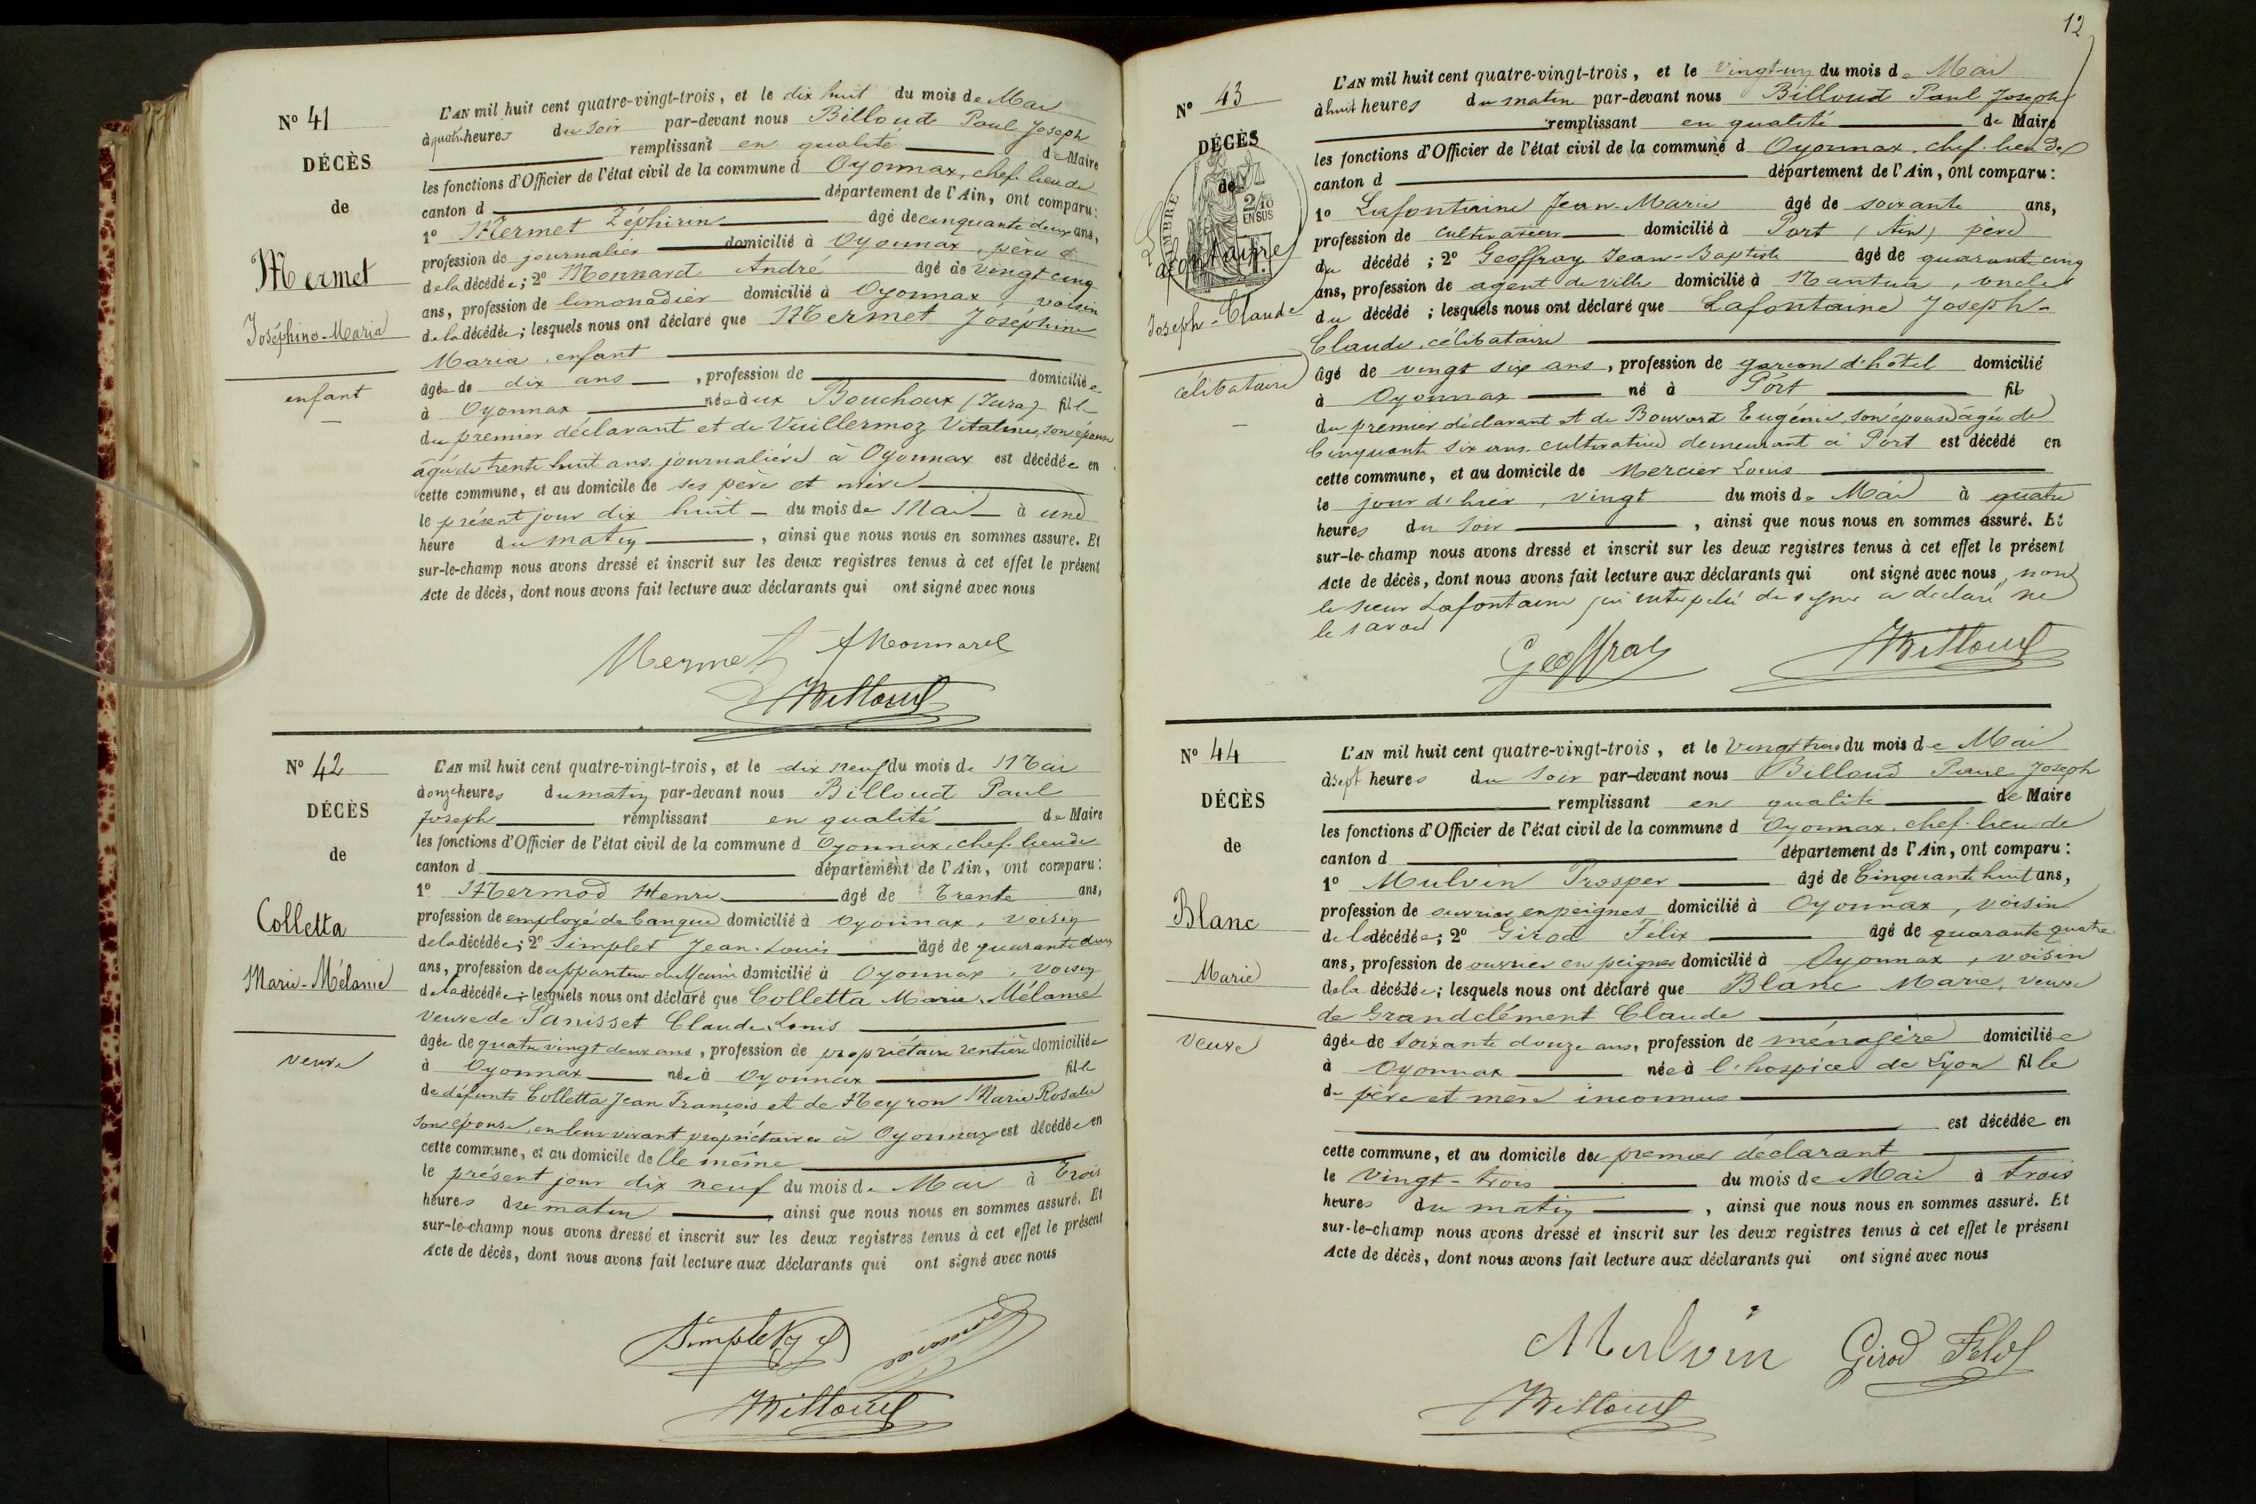 N° 41
DÉCÈS
de
Mermet
Joséphine-Maria
enfant
L'AN mil huit cent quatre-vingt-trois, et le dix huit du mois de Mai
à quatre heures du soir par-devant nous Billoud Paul Joseph
remplissant en qualité de Maire
les fonctions d'Officier de l'état civil de la commune d Oyonnax, chef-lieu de
canton d département de l'Ain, ont comparu:
1° Mermet Zéphirin âgé de cinquante deux ans,
profession de journalier domicilié à Oyonnax, père
de la décédée; 2° Monnard André âgé de vingt cinq
ans, profession de limonadier domicilié à Oyonnax, voisin
de la décédée; lesquels nous ont déclaré que Mermet Joséphine
Maria, enfant
âgée de dix ans, profession de domiciliée
à Oyonnax née à ux Bouchoux (Jura) fille
du premier déclarant et de Vuillermoz Vitaline, son épouse
âgée de trente huit ans, journalière à Oyonnax est décédée en
cette commune, et au domicile de ses père et mère
le présent jour dix huit du mois de Mai à une
heure du matin, ainsi que nous nous en sommes assuré. Et
sur-le-champ nous avons dressé et inscrit sur les deux registres tenus à cet effet le présent
Acte de décès, dont nous avons fait lecture aux déclarants qui ont signé avec nous
Mermet A Monnard
Billoud
N° 42
DÉCÈS
de
Colletta
Marie-Mélanie
veuve
L'AN mil huit cent quatre-vingt-trois, et le dix neuf du mois de Mai
à onze heures du matin par-devant nous Billoud Paul
Joseph remplissant en qualité de Maire
les fonctions d'Officier de l'état civil de la commune d Oyonnax, chef-lieu de
canton d département de l'Ain, ont comparu:
1° Mermod Henri âgé de trente ans,
profession de employé de banque domicilié à Oyonnax, voisin
de la décédée; 2° Simplet Jean-Louis âgé de quarante deux
ans, profession de appariteur de Mairie domicilié à Oyonnax, voisin
de la décédée; lesquels nous ont déclaré que Colletta Marie Mélanie
veuve de Panisset Claude Louis
âgée de quatre vingt deux ans, profession de propriétaire rentière domiciliée
à Oyonnax née à Oyonnax fille
de défunts Colletta Jean François et de Heyron Marie Rosalie
son épouse, en leur vivant propriétaires à Oyonnax est décédée en
cette commune, et au domicile de lle même
le présent jour dix neuf du mois de Mai à trois
heures du matin, ainsi que nous nous en sommes assuré. Et
sur-le-champ nous avons dressé et inscrit sur les deux registres tenus à cet effet le présent
Acte de décès, dont nous avons fait lecture aux déclarants qui ont signé avec nous
Simplet Mermod
Billoud
12
N° 43
DÉCÈS
de
TIMBRE
2/10
EN SUS
Lafontaine
Joseph-Claude
célibataire
L'AN mil huit cent quatre-vingt-trois, et le vingt-un du mois de Mai
à huit heures du matin par-devant nous Billoud Paul Joseph
remplissant en qualité de Maire
les fonctions d'Officier de l'état civil de la commune d Oyonnax, chef-lieu de
canton d département de l'Ain, ont comparu:
1° Lafontaine Jean-Marie âgé de soixante ans,
profession de cultivateur domicilié à Port (Ain) père
du décédé; 2° Geoffray Jean-Baptiste âgé de quarante cinq
ans, profession de agent de ville domicilié à Nantua, oncle
du décédé; lesquels nous ont déclaré que Lafontaine Joseph-
Claude, célibataire
âgé de vingt six ans, profession de garçon d'hôtel domicilié
à Oyonnax né à Port fil
du premier déclarant et de Bouvard Eugénie, son épouse âgée de
Cinquante six ans, cultivatrice demeurant à Port est décédé en
cette commune, et au domicile de Mercier Louis
le jour d'hier, vingt du mois de Mai à quatre
heures du soir, ainsi que nous nous en sommes assuré. Et
sur-le-champ nous avons dressé et inscrit sur les deux registres tenus à cet effet le présent
Acte de décès, dont nous avons fait lecture aux déclarants qui ont signé avec nous, non
le sieur Lafontaine qui interpellé de signer a déclaré ne
le savoir
Geoffray Billoud
N° 44
DÉCÈS
de
Blanc
Marie
veuve
L'AN mil huit cent quatre-vingt-trois, et le vingt trois du mois de Mai
à sept heures du soir par-devant nous Billoud Paul Joseph
remplissant en qualité de Maire
les fonctions d'Officier de l'état civil de la commune d Oyonnax, chef-lieu de
canton d département de l'Ain, ont comparu:
1° Mulvin Prosper âgé de Cinquante huit ans,
profession de ouvrier en peignes domicilié à Oyonnax, voisin
de la décédée; 2° Girod Félix âgé de quarante quatre
ans, profession de ouvrier en peignes domicilié à Oyonnax, voisin
de la décédée; lesquels nous ont déclaré que Blanc Marie, veuve
de Grandclément Claude
âgée de soixante douze ans, profession de ménagère domiciliée
à Oyonnax née à l'hospice de Lyon fille
de père et mère inconnus
est décédée en
cette commune, et au domicile du premier déclarant
le vingt-trois du mois de Mai à trois
heures du matin, ainsi que nous nous en sommes assuré. Et
sur-le-champ nous avons dressé et inscrit sur les deux registres tenus à cet effet le présent
Acte de décès, dont nous avons fait lecture aux déclarants qui ont signé avec nous
Mulvin Girod Félix
Billoud